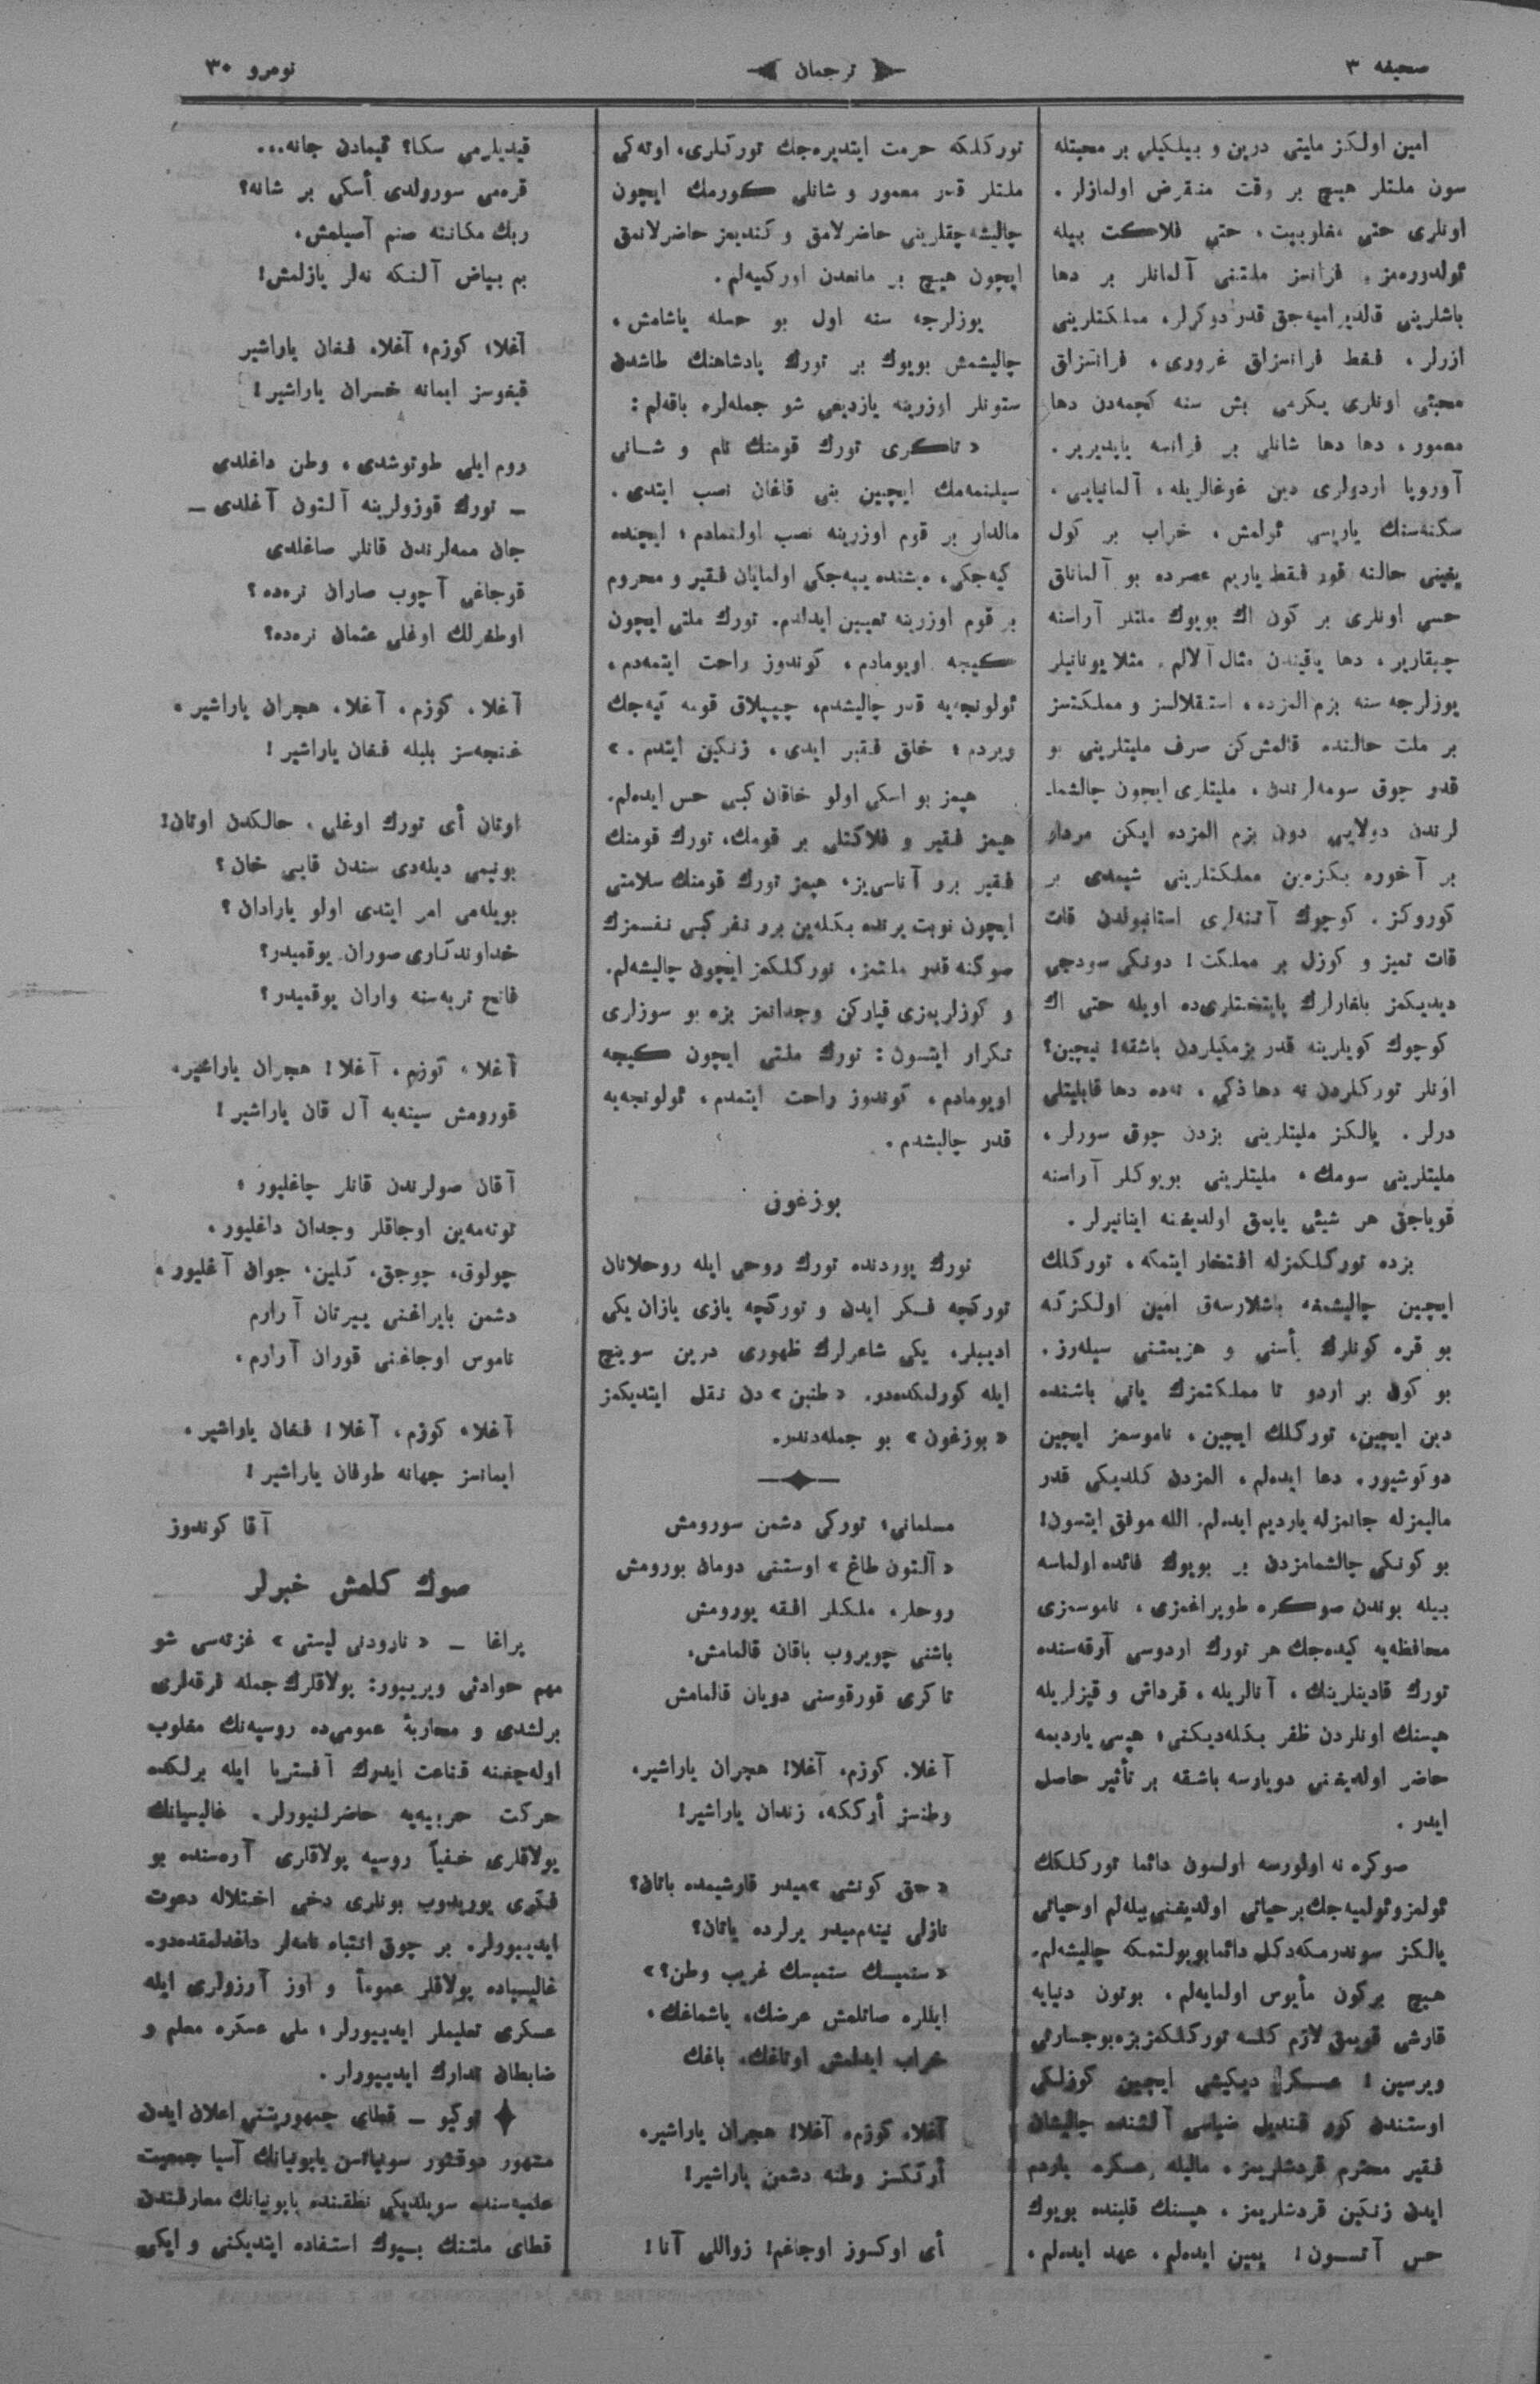 صحیفه ۳
ترجمان
نومرو ۳۰
امین اولکز ملیتی درین و بیلکیلی بر محبتله
سون ملتلر هیچ بر وقت منقرض اولمازلر .
اونلری حتی مغلوبیت، حتی فلاکت بیله
ئولدورەمز. فرانسز ملتنی آلمانلر بر دها
باشلرینی قالدیرامیەجق قدر دوکرلر، مملکتلرینی
ازرلر، فقط فرانسزلق غروری، فرانسزلق
محبتی اونلری یکرمی بش سنه کچمەدن دها
معمور، دها دها شانلی بر فرانسه یاپدیریر.
آوروپا اردولری دین غوغالریله، آلمانیایی،
سکنەسنك یاریسی ئولمش، خراب بر کول
یغینی حالنه قور فقط یاریم عصرده بو آلمانلق
حسی اونلری بر کون اك بویوك ملتلر آراسنه
چیقاریر، دها یاقیندن مثال آلالم. مثلا یونانیلر
یوزلرجه سنه بزم المزده، استقلالسز و مملکتسز
بر ملت حالنده قالمش‌کن صرف ملیتلرینی بو
قدر چوق سومەلرندن، ملیتلری ایچون چالشمالـ
لرندن دولایی دون بزم المزده ایکن مردار
بر آخوره بکزەین مملکتلرینی شیمدی بر
کوروکز. کوچوك آتنەلری استانبولدن قات
قات تمیز و کوزل بر مملکت! دونکی سودجی
دیدیکمز بلغارلرك پایتختلری‌ده اویله حتی اك
کوچوك کویلرینه قدر بزمکیلردن باشقه! نیچین؟
اونلر تورکلردن نه دها ذکی، نەده دها قابلیتلی
درلر. یالکز ملیتلرینی بزدن چوق سورلر،
ملیتلرینی سومك، ملیتلرینی بویوکلر آراسنه
قویاجق هر شیئی یاپمق اولدیغنه اینانیرلر.
بزده تورکلکمزله افتخار ایتمکه، تورکلك
ایچین چالیشمغه باشلارسەق امین اولکزکه
بو قره کونلرك یأسنی و هزیمتنی سیلەرز.
بو کون بر اردو تا مملکتمزك یانی باشنده
دین ایچین، تورکلك ایچین، ناموسمز ایچین
دوکوشیور. دعا ایدەلم، المزدن کلدیکی قدر
مالیمزله جانمزله یاردیم ایدەلم. الله موفق ایتسون!
بو کونکی چالشمامزدن بر بویوك فائده اولماسه
بیله بوندن صوکره طوپراغمزی، ناموسمزی
محافظەیه کیدەجك هر تورك اردوسی آرقەسنده
تورك قادینلرینك، آنالریله، قرداش و قیزلریله
هپسنك اونلردن ظفر بکلەدیکنی، هپسی یاردیمه
حاضر اولدیغنی دویارسه باشقه بر تأثیر حاصل
ایدر.
صوکره نه اولورسه اولسون دائما تورکلکك
ئولمز وئولمیەجك بر حیاتی اولدیغنی بیلەلم او حیاتی
یالکز سوندرمکەدکل دائما بویولتمکه چالیشەلم.
هیچ برکون مأیوس اولمایەلم، بوتون دنیایه
قارشی قویمق لازم کلسه تورکلکمز بزه بو جسارتی
ویرسین! عسکرلر دیکیشی ایچین کوزلکی
اوستندن کور قندیل ضیاسی آلتنده چالیشان
فقیر محترم قردشلریمز، مالیله عسکره یاردم
ایدن زنکین قردشلریمز، هپسنك قلبنده بویوك
حس آتسون! یمین ایدەلم، عهد ایدەلم،
تورکلکه حرمت ایتدیرەجك تورکلری، اوتەکی
ملتلر قدر معمور و شانلی کورمك ایچون
چالیشەجقلرینی حاضرلامق و کندیمز حاضرلانمق
ایچون هیچ بر مانعدن اورکمیەلم.
یوزلرجه سنه اول بو حسله یاشامش،
چالیشمش بویوك بر تورك پادشاهنك طاشدن
ستونلر اوزرینه یازدیغی شو جملەلره باقەلم:
«تاکری تورك قومنك نام و شانی
سیلنمەمك ایچین بنی قاغان نصب ایتدی.
مالدار بر قوم اوزرینه نصب اولنمادم؛ ایچنده
کیەجکی، دیشنده ییەجکی اولمایان فقیر و محروم
بر قوم اوزرینه تعیین ایدلدم. تورك ملتی ایچون
کیجه اویومادم، کوندوز راحت ایتمەدم،
ئولونجەیه قدر چالیشدم، چیپلاق قومه کیەجك
ویردم؛ خلق فقیر ایدی، زنکین ایتدم.»
هپمز بو اسکی اولو خاقان کبی حس ایدەلم.
هپمز فقیر و فلاکتلی بر قومك، تورك قومنك
فقیر برر آناسی‌یز، هپمز تورك قومنك سلامتی
ایچون نوبت یرنده بکلەین برر نفر کبی نفسمزك
صوکنه قدر ملتمز، تورکلکمز ایچون چالیشەلم.
و کوزلریمزی قپارکن وجدانمز بزه بو سوزلری
تکرار ایتسون: تورك ملتی ایچون کیجه
اویومادم، کوندوز راحت ایتمدم، ئولونجەیه
قدر چالیشدم.
بوزغون
تورك یوردنده تورك روحی ایله روحلانان
تورکچه فکر ایدن و تورکچه یازی یازان یکی
ادیبلر، یکی شاعرلرك ظهوری درین سوینچ
ایله کورلمکدەدر. «طنین» دن نقل ایتدیکمز
«بوزغون» بو جملەدندر.
مسلمانی، تورکی دشمن سورومش
«آلتون طاغ» اوستنی دومان بورومش
روحلر، ملکلر افقه یورومش
باشنی چویروب باقان قالمامش،
تاکری قورقوسنی دویان قالمامش
آغلا، کوزم، آغلا! هجران یاراشیر،
وطنسز أرککه، زندان یاراشیر!
«حق کونشی» میدر قارشیمده باتان؟
نازلی نینەم‌میدر یرلرده یاتان؟
«ستمیسك ستمیسك غریب وطن؟»
ایللره صاتلمش عرضك، یاشماغك،
خراب ایدلمش اوتاغك، باغك
آغلا، کوزم، آغلا! هجران یاراشیر،
أرککسز وطنه دشمن یاراشیر!
أی اوکسوز اوجاغم! زواللی آنا!
قیدیلرمی سکا؟ قیمادن جانه...
قرەمی سورولدی أسکی بر شانه؟
ربك مکاننه صنم آصیلمش،
بم بیاض آلنکه نەلر یازلمش!
آغلا، کوزم، آغلا، فغان یاراشیر
قیغوسز ایمانه خسران یاراشیر!
روم ایلی طوتوشدی، وطن داغلدی
ـ تورك قوزولرینه آلتون آغلدی ـ
جان ممەلرندن قانلر صاغلدی
قوجاغی آچوب صاران نرەده؟
اوطغرلك اوغلی عثمان نرەده؟
آغلا، کوزم، آغلا، هجران یاراشیر،
غنچەسز بلبله فغان یاراشیر!
اوتان أی تورك اوغلی، حالکدن اوتان!
بونیمی دیلەدی سندن قایی خان؟
بویلەمی امر ایتدی اولو یارادان؟
خداوندکاری صوران یوقمیدر؟
فاتح تربەسنه واران یوقمیدر؟
آغلا، کوزم، آغلا! هجران یاراشیر،
قورومش سینەیه آل قان یاراشیر!
آقان صولرندن قانلر چاغلیور،
توتەمەین اوجاقلر وجدان داغلیور،
چولوق، چوجق، کلین، جوان آغلیور،
دشمن بایراغنی ییرتان آرارم
ناموس اوجاغنی قوران آرارم،
آغلا، کوزم، آغلا! فغان یاراشیر،
ایمانسز جهانه طوفان یاراشیر!
آقا کوندوز
صوك کلمش خبرلر
پراغا ـ «نارودنی لیستی» غزتەسی شو
مهم حوادثی ویرییور: پولاقلرك جمله فرقەلری
برلشدی و محاربۀ عمومی‌ده روسیەنك مغلوب
اولەجغنه قناعت ایدرك آفستریا ایله برلکده
حرکت حربیەیه حاضرلنیورلر. غالیسیانك
پولاقلری خفیاً روسیه پولاقلری آرەسنده بو
فکری یوریدوب بونلری دخی اختلاله دعوت
ایدییورلر. بر چوق انتباه نامەلر داغدلمقدەدر.
غالیسیاده پولاقلر عموماً و اوز آرزولری ایله
عسکری تعلیملر ایدییورلر؛ ملی عسکره معلم و
ضابطان تدارك ایدییورلر.
توکیو ـ قطای جمهوریتنی اعلان ایدن
مشهور دوقتور سونیاتسن یاپونیانك آسیا جمعیت
علمیەسنده سویلدیکی نطقنده یاپونیانك معارفندن
قطای ملتنك بسیوك استفاده ایتدیکنی و ایکی